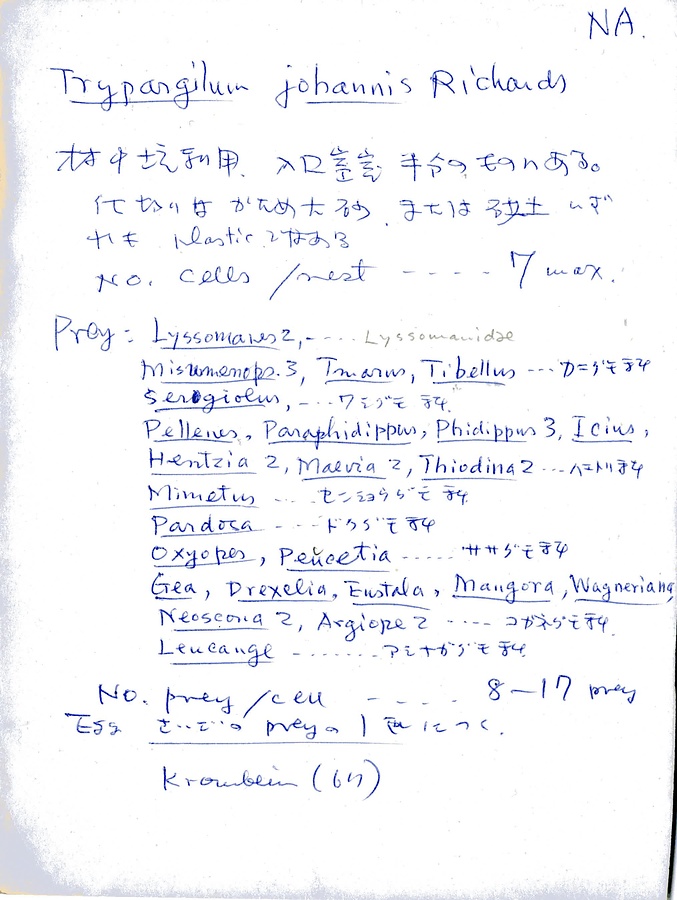 NA.
Trypargilum johannis Richards
材中坑利用. 入口空室 半分のものにある。
仕切りは かため大砂 または 砂土 いず
れも plastic である
No. cells /nest ---- 7 max.
Prey: Lyssomanes 2, ---- Lyssomanidae
Misumenops. 3, Tmarus, Tibellus --- カニグモ科
Sergiolus, --- ワシグモ科.
Pellenes, Paraphidippus, Phidippus 3, Icius,
Hentzia 2, Maevia 2, Thiodina 2 --- ハエトリ科
Mimetus ---- センショウグモ科
Pardosa ---- ドクグモ科
Oxyopes, Peucetia ----- ササグモ科
Gea, Drexelia, Eustala, Mangora, Wagneriana,
Neoscona 2, Argiope 2 ---- コガネグモ科.
Leucauge ------- アシナガグモ科
No. prey /cell ---- 8-17 prey
Egg さいごの preyの につく.
Krombein (67)